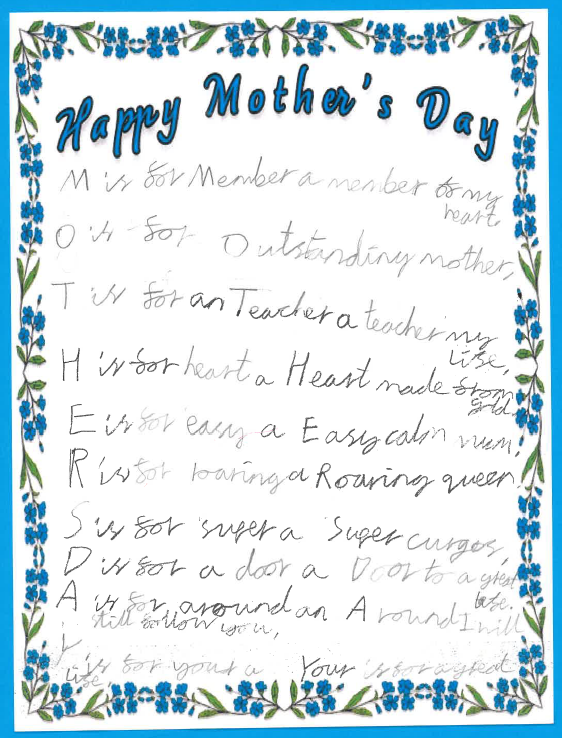 Happy Mother's Day
M is for Member a member of my
heart.
O is for Outstanding mother,
T is for an Teacher a teacher my
life,
H is for heart a Heart made from
gold.
E is for easy a Easy calm mum,
R is for roaring a Roaring queen,
S is for super a Super
D is for a door a Door to a great
life.
A is for around an Around I will
still follow you,
Y is for your a Your is for a great
life